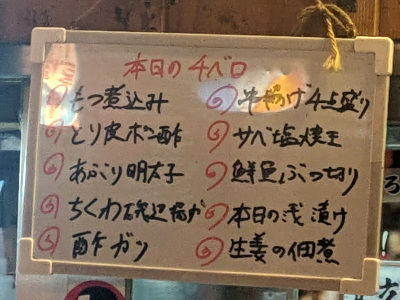 本日のチベロ
もつ煮込み
とり皮ポン酢
あぶり明太子
ちくわ磯辺揚げ
酢ガツ
串揚げ4点盛り
サバ塩焼き
鮮魚ぶつ切り
本日の浅漬け
生姜の佃煮